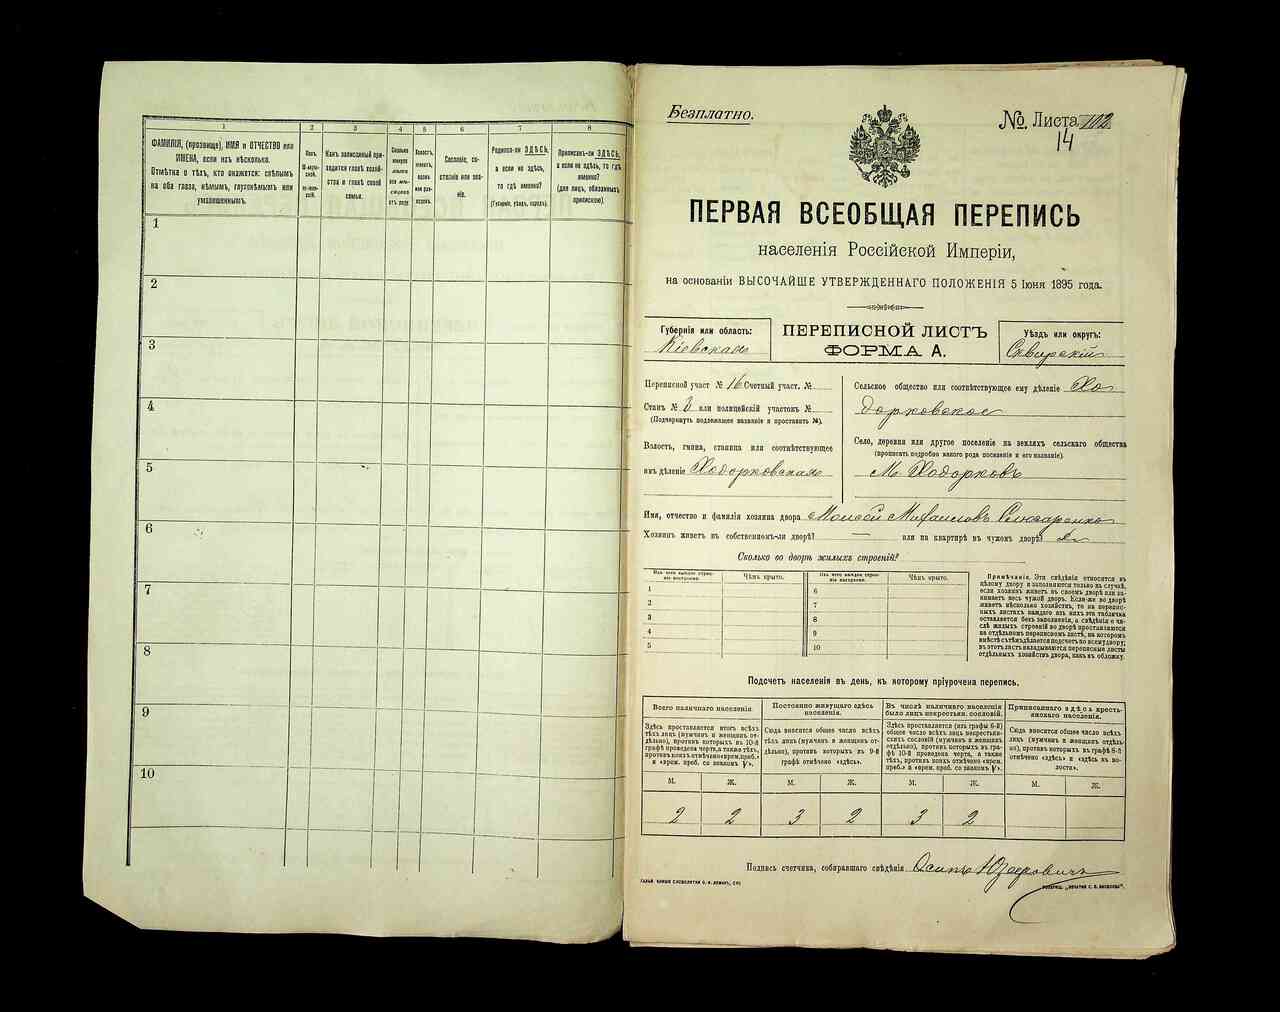 1
2
3
4
5
6
7
8
ФАМИЛІЯ, (прозвище), ИМЯ и ОТЧЕСТВО или
ИМЕНА, если ихъ нѣсколько.
Отмѣтка о тѣхъ, кто окажется: слѣпымъ
на оба глаза, нѣмымъ, глухонѣмымъ или
умалишеннымъ.
Полъ.
Какъ записанный при-
ходится главѣ хозяй-
ства и главѣ своей
семьи.
Сколько
минуло
лѣтъ
или мѣ-
сяцевъ
отъ роду.
Сословіе, со-
стояніе или зва-
ніе.
Родился-ли ЗДѢСЬ,
а если не здѣсь,
то гдѣ именно?
(Губернія, уѣздъ, городъ).
Приписанъ-ли ЗДѢСЬ,
а если не здѣсь, то гдѣ
именно?
(для лицъ, обязанныхъ
припискою).
1
2
3
4
5
6
7
8
9
10
Безплатно.
№ Листа 102
14
ПЕРВАЯ ВСЕОБЩАЯ ПЕРЕПИСЬ
населенія Россійской Имперіи,
на основаніи ВЫСОЧАЙШЕ УТВЕРЖДЕННАГО ПОЛОЖЕНІЯ 5 Іюня 1895 года.
Губернія или область:
Кіевская
ПЕРЕПИСНОЙ ЛИСТЪ
ФОРМА А.
Уѣздъ или округъ:
Сквирскій
Переписной участ № 16 Счетный участ. №
Станъ № 3 или полицейскій участокъ №
(Подчеркнуть подлежащее названіе и проставить №).
Волость, гмина, станица или соотвѣтствующее
имъ дѣленіе Ходорковская
Сельское общество или соотвѣтствующее ему дѣленіе Хо
дорковское
Село, деревня или другое поселеніе на земляхъ сельскаго общества
(прописать подробно какого рода поселеніе и его названіе).
М. Ходорковъ
Имя, отчество и фамилія хозяина двора Моисей Михаиловъ Слюсаренко
Хозяинъ живетъ въ собственномъ-ли дворѣ? — или на квартирѣ въ чужомъ дворѣ? да
Сколько во дворѣ жилыхъ строеній?
Изъ чего каждое строе-
ніе построено.
Чѣмъ крыто.
Изъ чего каждое строе-
ніе построено.
Чѣмъ крыто.
1
2
3
4
5
6
7
8
9
10
Примѣчаніе. Эти свѣдѣнія относятся къ
цѣлому двору и заполняются только въ случаѣ,
если хозяинъ живетъ въ своемъ дворѣ или за-
нимаетъ весь чужой дворъ. Если-же во дворѣ
живетъ нѣсколько хозяйствъ, то на перепис-
ныхъ листахъ каждаго изъ нихъ эта табличка
оставляется безъ заполненія, а свѣдѣнія о чи-
слѣ жилыхъ строеній во дворѣ проставляются
на отдѣльномъ переписномъ листѣ, на которомъ
вмѣстѣ съ тѣмъ дѣлается подсчетъ по всему двору;
въ этотъ листъ вкладываются переписные листы
отдѣльныхъ хозяйствъ двора, какъ въ обложку.
Подсчетъ населенія въ день, къ которому пріурочена перепись.
Всего наличнаго населенія.
Здѣсь проставляется итогъ всѣхъ
тѣхъ лицъ (мужчинъ и женщинъ от-
дѣльно), противъ которыхъ въ 10-й
графѣ проведена черта, а также тѣхъ,
противъ коихъ отмѣчено «врем. преб.»
и «врем. преб. со знакомъ V».
Постоянно живущаго здѣсь
населенія.
Сюда вносится общее число всѣхъ
тѣхъ лицъ (мужчинъ и женщинъ от-
дѣльно), противъ которыхъ въ 9-й
графѣ отмѣчено «здѣсь».
Въ числѣ наличнаго населенія
было лицъ некрестьян. сословій.
Здѣсь проставляется (изъ графы 6-й)
общее число всѣхъ лицъ некрестьян-
скихъ сословій (мужчинъ и женщинъ
отдѣльно), противъ которыхъ въ гра-
фѣ 10-й проведена черта, а также
тѣхъ, противъ коихъ отмѣчено «врем.
преб.» и «врем. преб. со знакомъ V».
Приписаннаго здѣсь кресть-
янскаго населенія.
Сюда вносится общее число всѣхъ
лицъ (мужчинъ и женщинъ отдѣль-
но), противъ которыхъ въ графѣ 8-й
отмѣчено «здѣсь» и «здѣсь въ во-
лости».
М. Ж. М. Ж. М. Ж. М. Ж.
2 2 3 2 3 2
Подпись счетчика, собиравшаго свѣдѣнія Осипъ